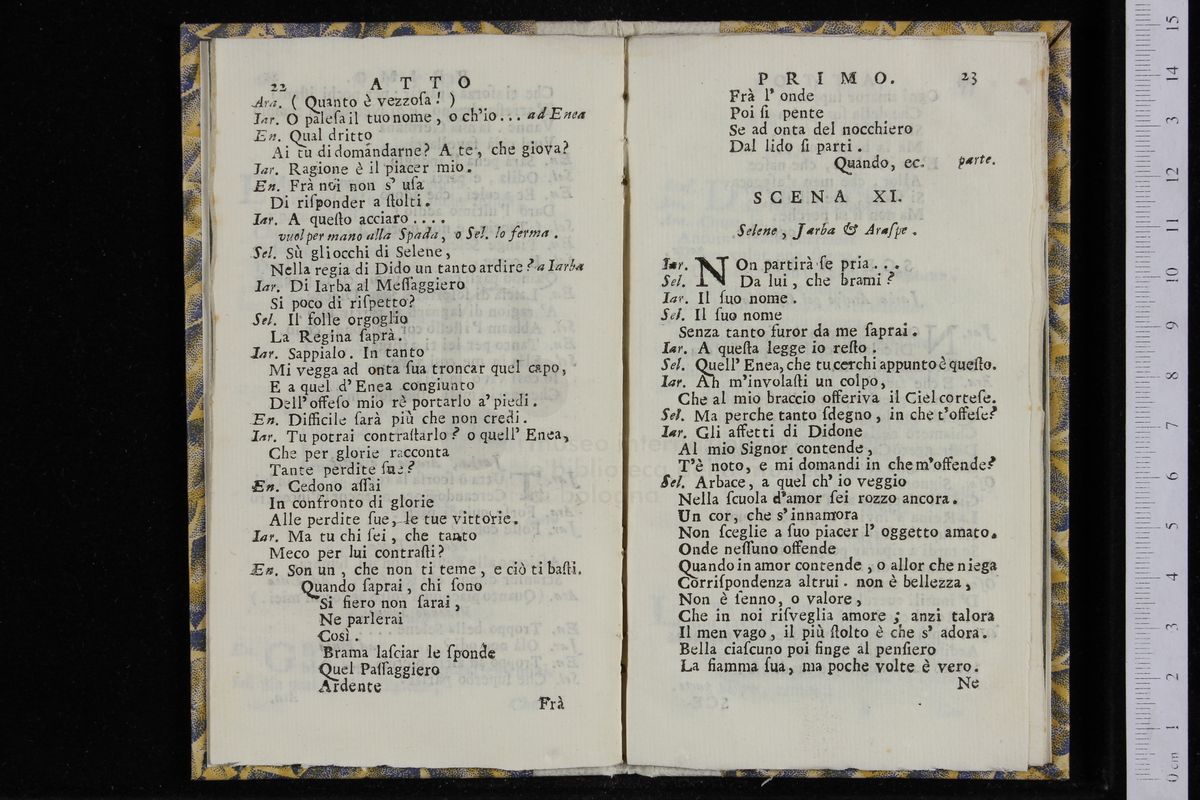 22 ATTO
Ara. ( Quanto è vezzoſa! )
Iar. O paleſa il tuo nome, o ch'io... ad Enea
En. Qual dritto
Ai tu di domandarne? A te, che giova?
Iar. Ragione è il piacer mio.
En. Frà noi non s' uſa
Di riſponder a ſtolti.
Iar. A queſto acciaro ....
vuol per mano alla Spada, o Sel. lo ferma.
Sel. Sù gliocchi di Selene,
Nella regia di Dido un tanto ardire? a Iarba
Iar. Di Iarba al Meſſaggiero
Si poco di riſpetto?
Sel. Il folle orgoglio
La Regina ſaprà.
Iar. Sappialo. In tanto
Mi vegga ad onta ſua troncar quel capo,
E a quel d' Enea congiunto
Dell' offeſo mio rè portarlo a' piedi.
En. Difficile ſarà più che non credi.
Iar. Tu potrai contraſtarlo? o quell' Enea,
Che per glorie racconta
Tante perdite ſue?
En. Cedono aſſai
In confronto di glorie
Alle perdite ſue, le tue vittorie.
Iar. Ma tu chi ſei, che tanto
Meco per lui contraſti?
En. Son un, che non ti teme, e ciò ti baſti.
Quando ſaprai, chi ſono
Si fiero non ſarai,
Ne parlerai
Così.
Brama laſciar le ſponde
Quel Paſſaggiero
Ardente
Frà
PRIMO. 23
Frà l' onde
Poi ſi pente
Se ad onta del nocchiero
Dal lido ſi parti.
Quando, ec. parte.
SCENA XI.
Selene, Jarba & Araſpe.
Iar. NOn partirà ſe pria...
Sel. Da lui, che brami?
Iar. Il ſuo nome.
Sel. Il ſuo nome
Senza tanto furor da me ſaprai.
Iar. A queſta legge io reſto.
Sel. Quell' Enea, che tu cerchi appunto è queſto.
Iar. Ah m'involaſti un colpo,
Che al mio braccio offeriva il Ciel corteſe.
Sel. Ma perche tanto ſdegno, in che t'offeſe?
Iar. Gli affetti di Didone
Al mio Signor contende,
T'è noto, e mi domandi in che m'offende?
Sel. Arbace, a quel ch' io veggio
Nella ſcuola d'amor ſei rozzo ancora.
Un cor, che s' innamora
Non ſceglie a ſuo piacer l' oggetto amato.
Onde neſſuno offende
Quando in amor contende, o allor che niega
Corriſpondenza altrui. non è bellezza,
Non è ſenno, o valore,
Che in noi riſveglia amore; anzi talora
Il men vago, il più ſtolto è che s' adora.
Bella ciaſcuno poi finge al penſiero
La fiamma ſua, ma poche volte è vero.
Ne